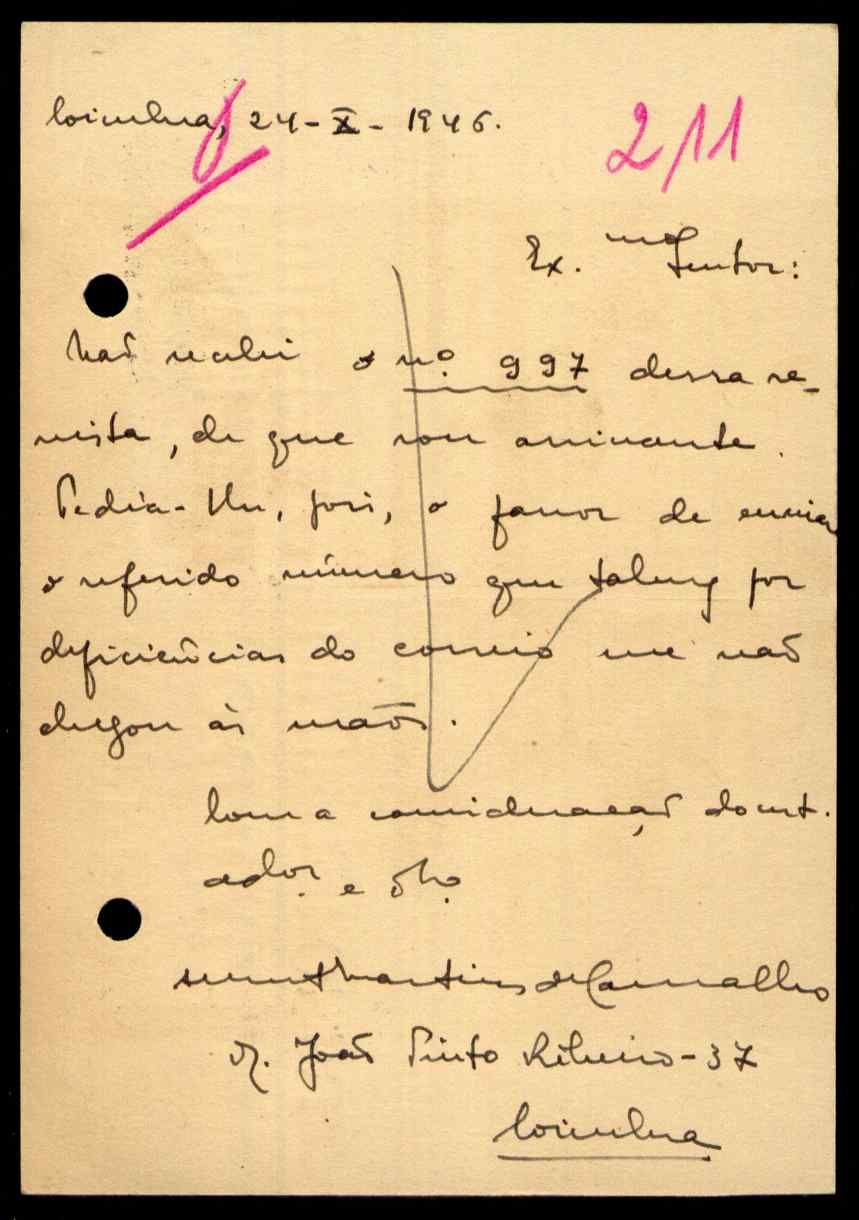 Coimbra, 24-X-1946.
211
Ex.mo Senhor:
Não recebi o nº. 997 dessa re-
vista, de que sou assinante.
Pedia-lhe, pois, o favor de enviar
o referido número que talvez por
deficiências do correio me não
chegou às mãos.
Com a consideração do ast.
ador. e obº.
Martins de Carvalho
R. João Pinto Ribeiro-37
Coimbra